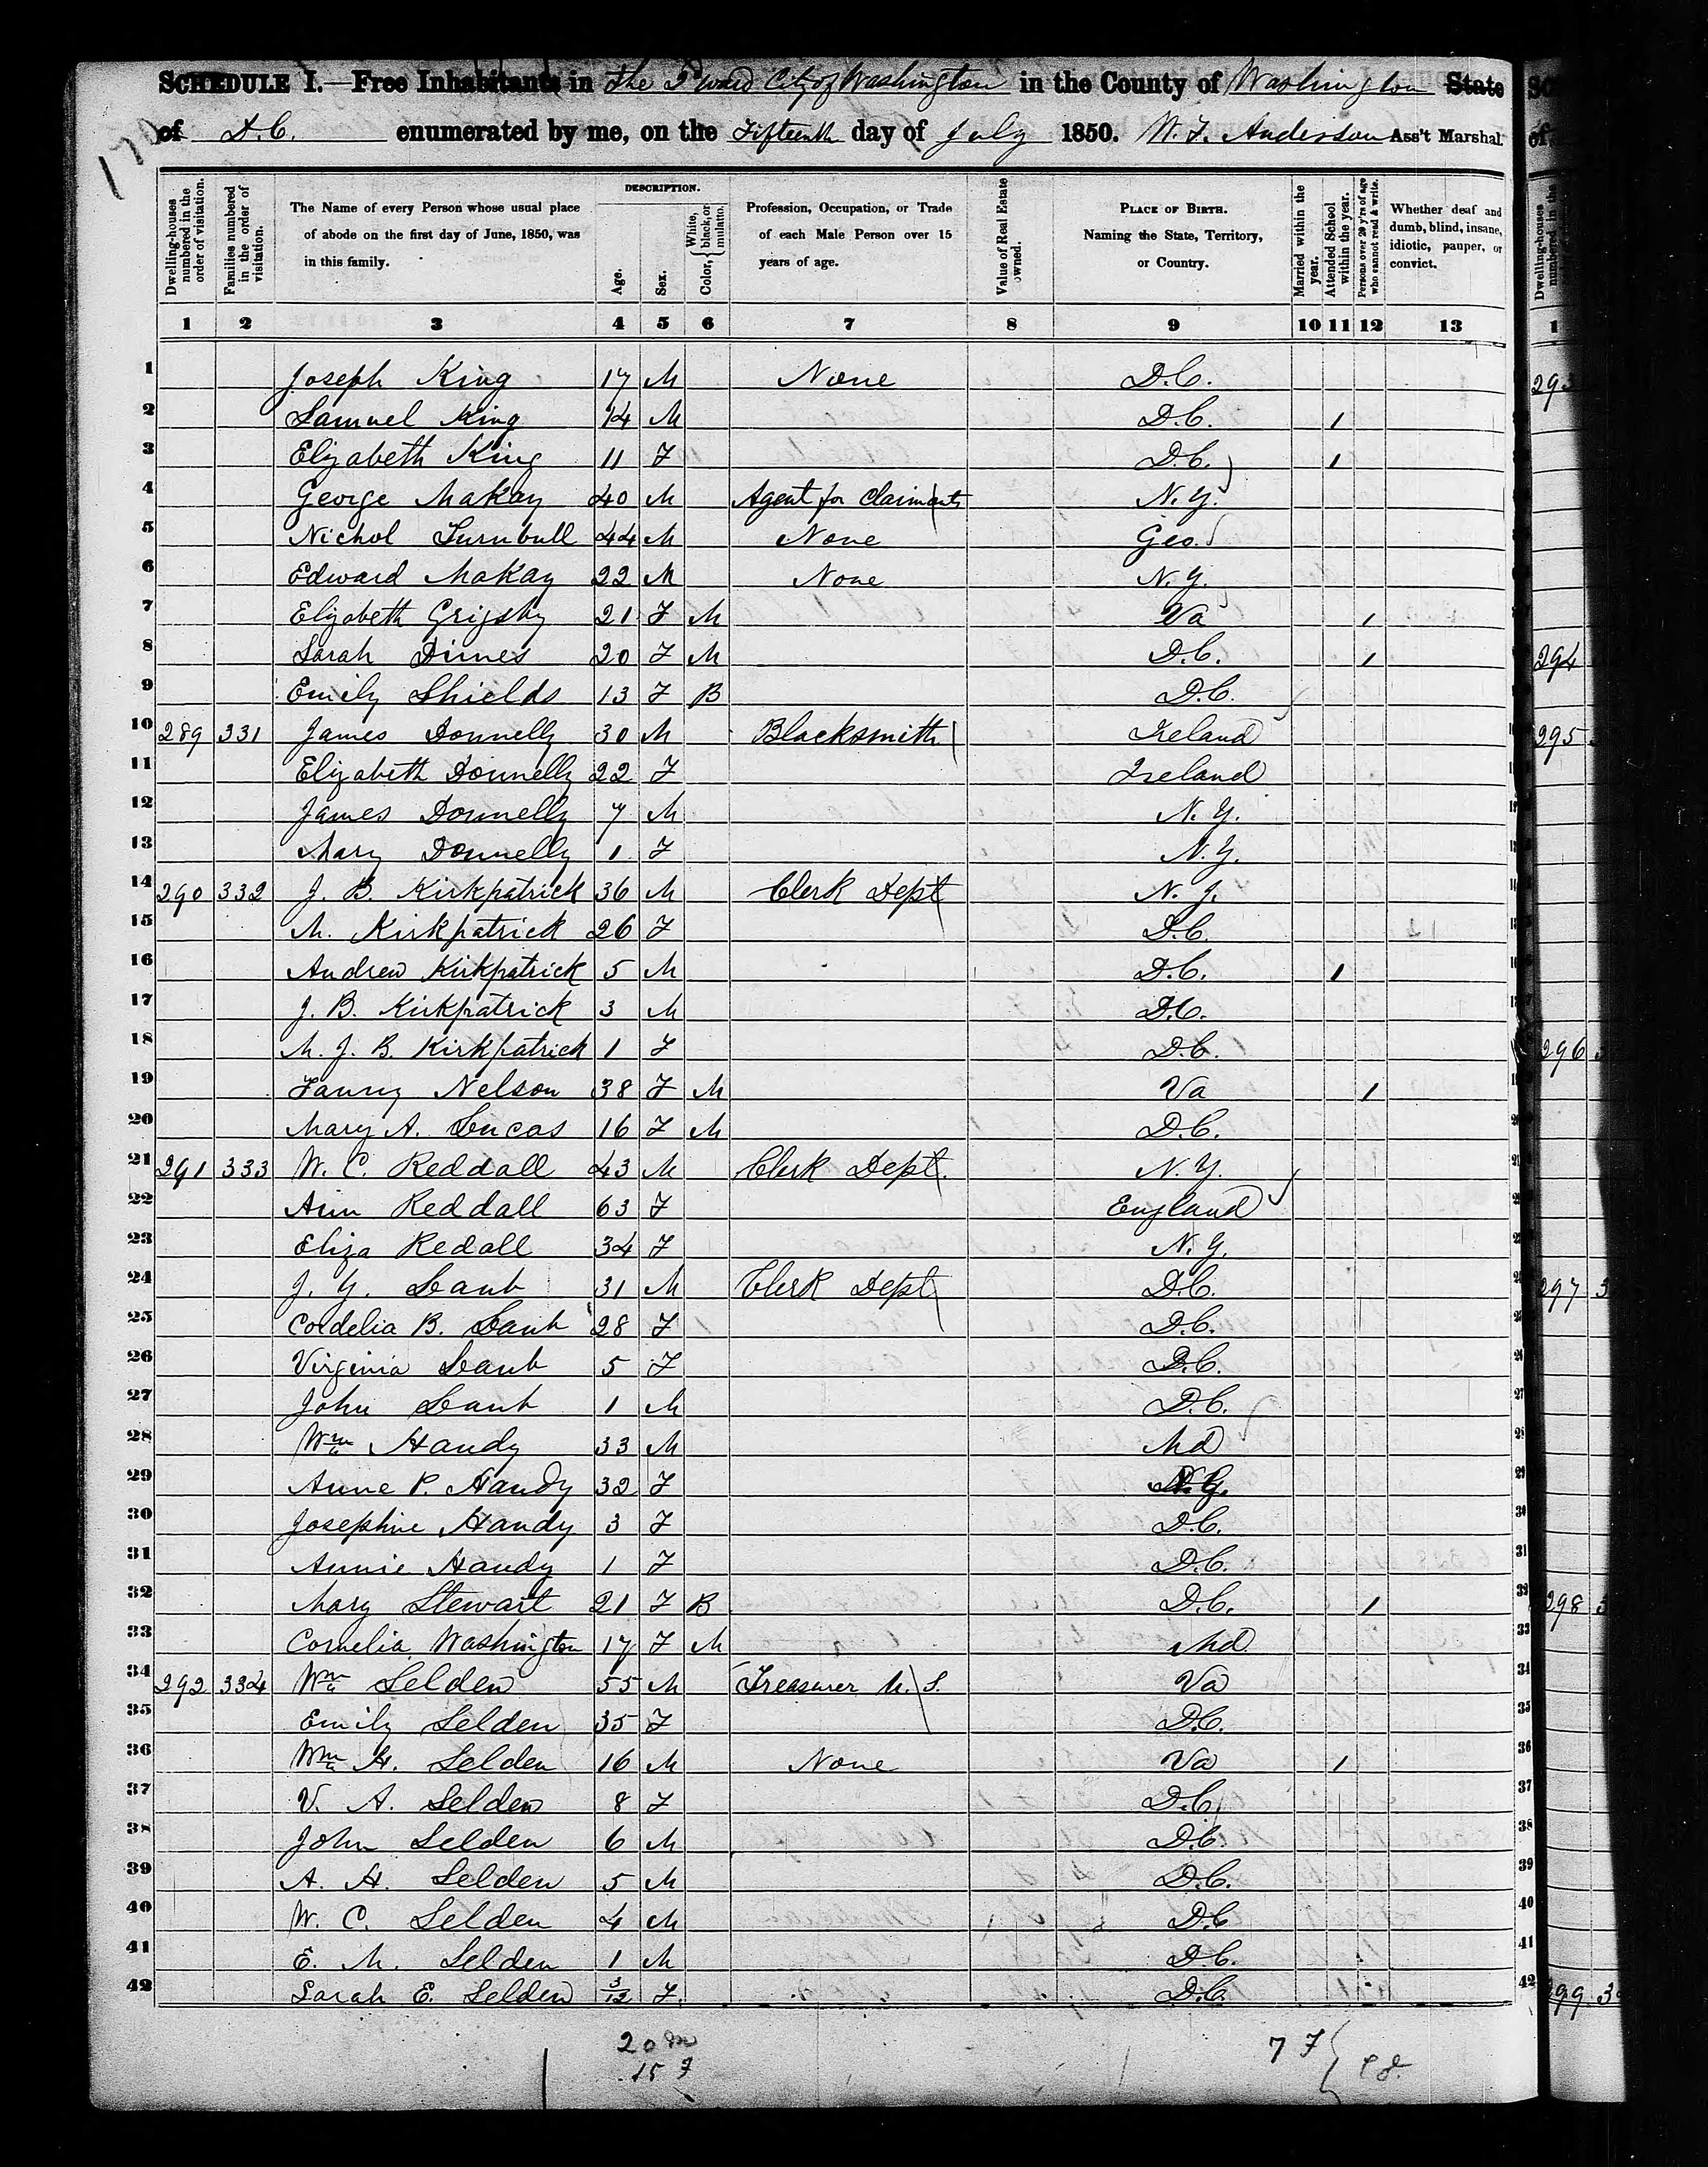 SCHEDULE I.—Free Inhabitants in The 2d Ward City of Washington in the County of Washington State
of D.C. enumerated by me, on the Fifteenth day of July 1850. W. J. Anderson Ass't Marshal.
Dwelling-houses numbered in the order of visitation.
Families numbered in the order of visitation.
The Name of every Person whose usual place of abode on the first day of June, 1850, was in this family.
DESCRIPTION.
Age.
Sex.
Color, White, black, or mulatto.
Profession, Occupation, or Trade of each Male Person over 15 years of age.
Value of Real Estate owned.
PLACE OF BIRTH. Naming the State, Territory, or Country.
Married within the year.
Attended School within the year.
Persons over 20 y'rs of age who cannot read & write.
Whether deaf and dumb, blind, insane, idiotic, pauper, or convict.
1 2 3 4 5 6 7 8 9 10 11 12 13
1 Joseph King 17 M None D.C.
2 Samuel King 14 M D.C. 1
3 Elizabeth King 11 F D.C. 1
4 George MaKay 40 M Agent for Claimants N.Y.
5 Nichol Turnbull 44 M None Geo.
6 Edward MaKay 22 M None N.Y.
7 Elizabeth Grigsby 21 F M Va 1
8 Sarah Dines 20 F M D.C. 1
9 Emily Shields 13 F B D.C.
10 289 331 James Donnelly 30 M Blacksmith Ireland
11 Elizabeth Donnelly 22 F Ireland
12 James Donnelly 7 M N.Y.
13 Mary Donnelly 1 F N.Y.
14 290 332 J. B. Kirkpatrick 36 M Clerk Dept N.J.
15 M. Kirkpatrick 26 F D.C.
16 Andrew Kirkpatrick 5 M D.C. 1
17 J. B. Kirkpatrick 3 M D.C.
18 M. J. B. Kirkpatrick 1 F D.C.
19 Fanny Nelson 38 F M Va 1
20 Mary A. Lucas 16 F M D.C.
21 291 333 W. C. Reddall 43 M Clerk Dept. N.Y.
22 Ann Reddall 63 F England
23 Eliza Redall 34 F N.Y.
24 J. Y. Laub 31 M Clerk Dept D.C.
25 Cordelia B. Laub 28 F D.C.
26 Virginia Laub 5 F D.C.
27 John Laub 1 M D.C.
28 Wm Handy 33 M Md
29 Anne P. Handy 32 F
30 Josephine Handy 3 F D.C.
31 Annie Handy 1 F D.C.
32 Mary Stewart 21 F B D.C. 1
33 Cornelia Washington 17 F M Md
34 292 334 Wm Selden 55 M Treasurer U.S. Va
35 Emily Selden 35 F D.C.
36 Wm H. Selden 16 M None Va 1
37 V. A. Selden 8 F D.C.
38 John Selden 6 M D.C.
39 A. H. Selden 5 M D.C.
40 W. C. Selden 4 M D.C
41 E. M. Selden 1 M D.C.
42 Sarah E. Selden 3/12 F. D.C.
20 m
15 F
7 F
294
295
296
297
298
299